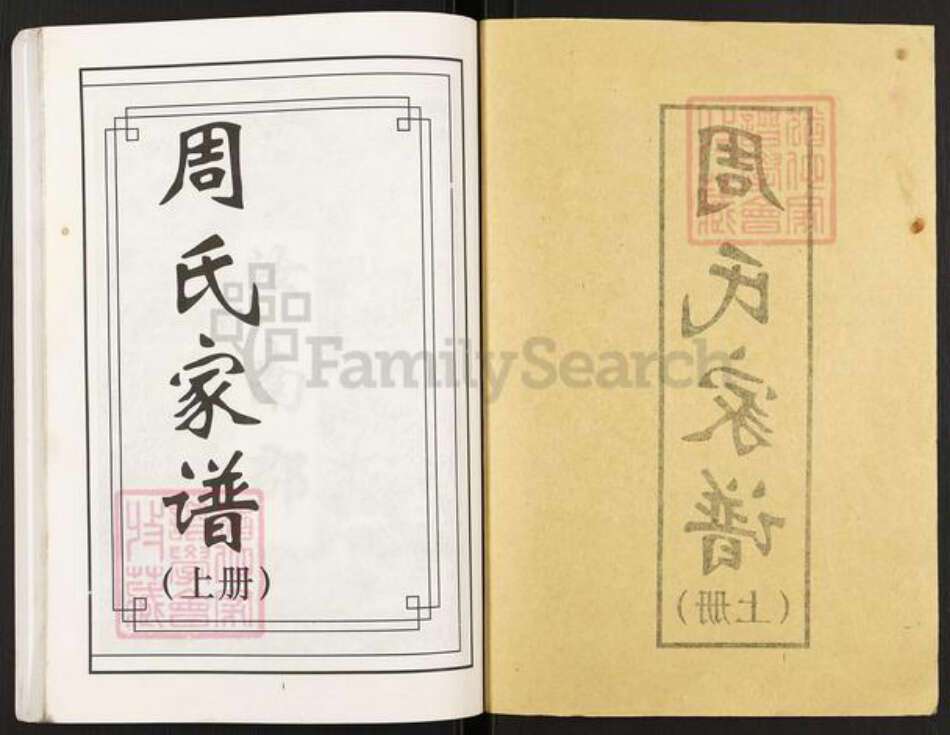 周氏家谱
(上册)
FamilySearch
周氏家谱
(上册)